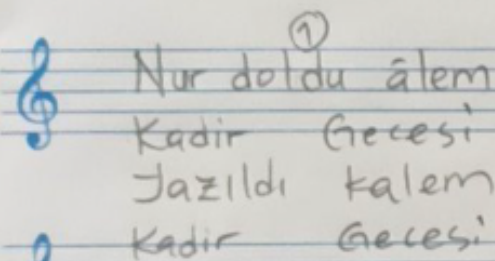 1
Nur doldu âlem
Kadir Gecesi
Yazıldı kalem
Kadir Gecesi